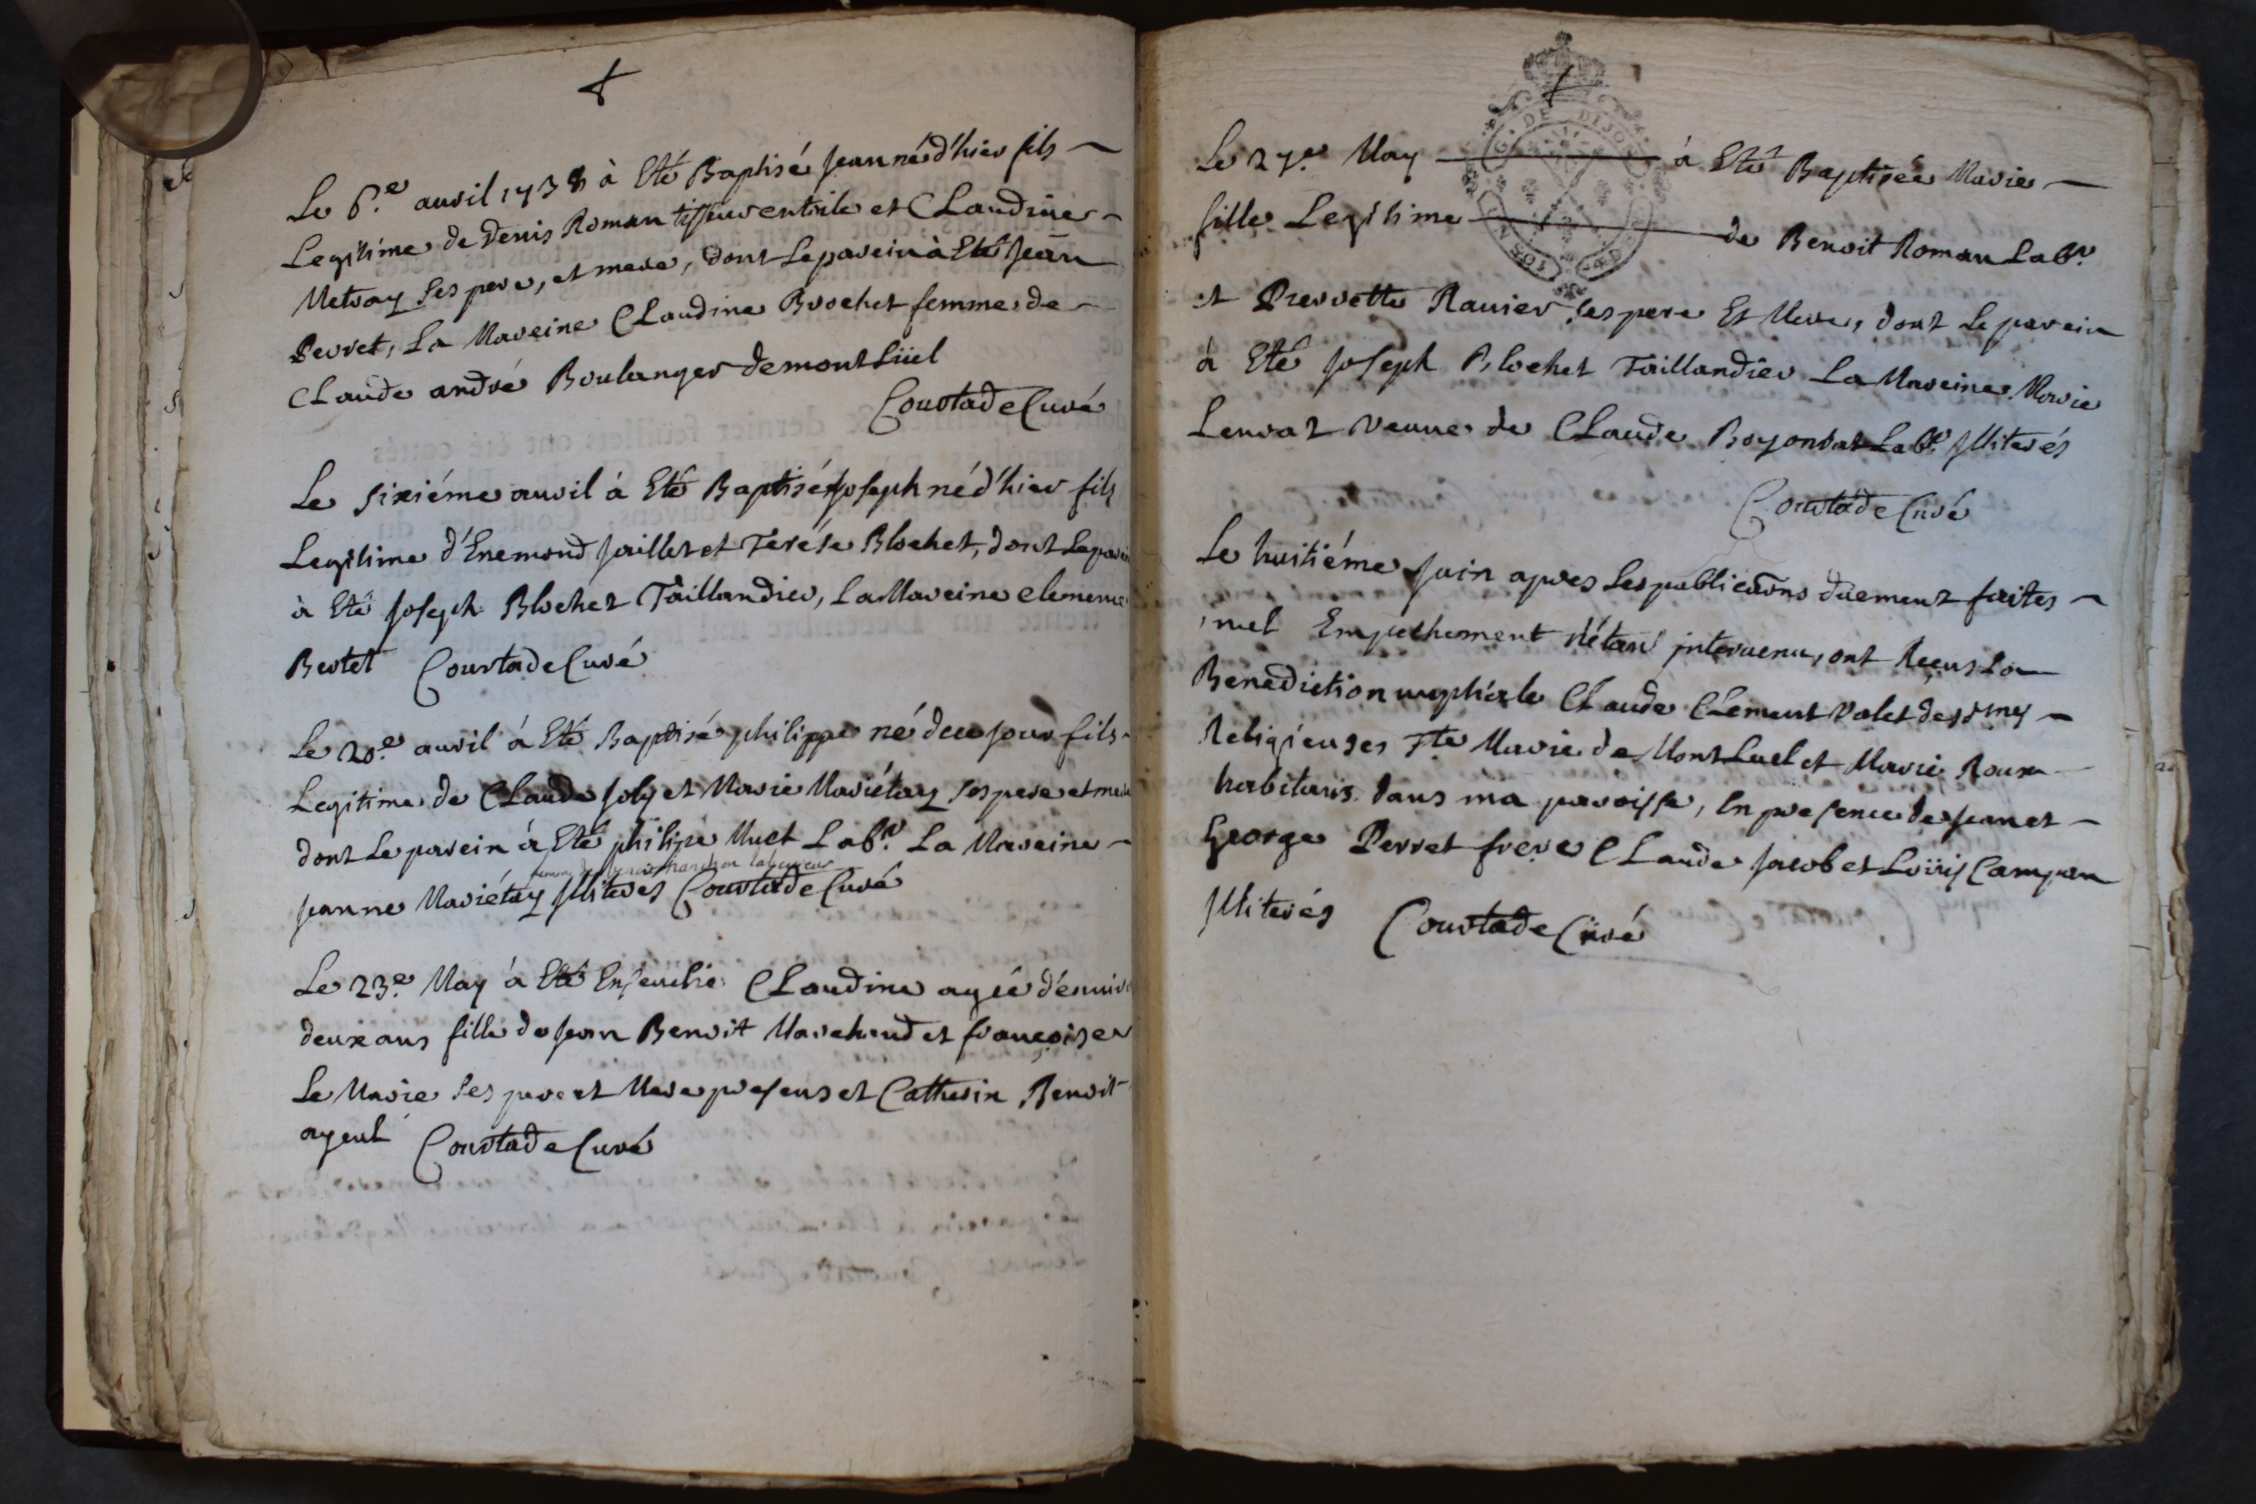 Le 6.e avril 1738 à Eté Baptisé Jean né d'hier fils
Legitime de Denis Roman tisseur en toile et Claudine
Metray ses pere, et mere, dont le parein à Eté Jean
Perret, La Mareine Claudine Brochet femme de
Claude andré Boulanger de montlüel
Courtade Curé
Le sixiéme avril à Eté Baptisé Joseph né d'hier fils
Legitime d'Enemond Jaillet et Terése Blochet, dont le parein
à Eté Joseph Blochet Taillandier, La Mareine clemence
Bertet Courtade Curé
Le 20.e avril à Eté Baptisé philippe né de ce jour fils
Legitime de Claude Joly et Marie Mariétay ses pere et mere
dont le parein à Eté philipe Muet Lab.r La Mareine
femme de laboureur
Jeanne Mariétay Illiterés Courtade Curé
Le 23.e May à Eté Enseuelie Claudine agée d'enuiro
deux ans fille de Jean Benoit Marchand et francoise
Le Marie ses pere et Mere presens et Catherin Benoit
ayeul Courtade Curé
DE DIJON
Le 27.e May à Eté Baptisée Marie
fille Legitime de Benoit Roman Lab.r
et Pierrette Rauier ses pere Et Mere, dont le parein
à Eté Joseph Blochet Taillandier La Mareine Marie
Lenrat veuue de Claude Boyondat Lab.r Illiterés
Courtade Curé
Le huitiéme Juin apres les publicãons düement faites
nul Empechement n'étant interuenu, ont Reçus la
Benediction nuptiale Claude Clément Valet des Dmes
Religieuses Ste Marie de Mont Luel et Marie Roux
habitans dans ma paroisse, En presence de Jean et
George Perret frere Claude Jacob et Loüis Campan
Illiterés Courtade Curé